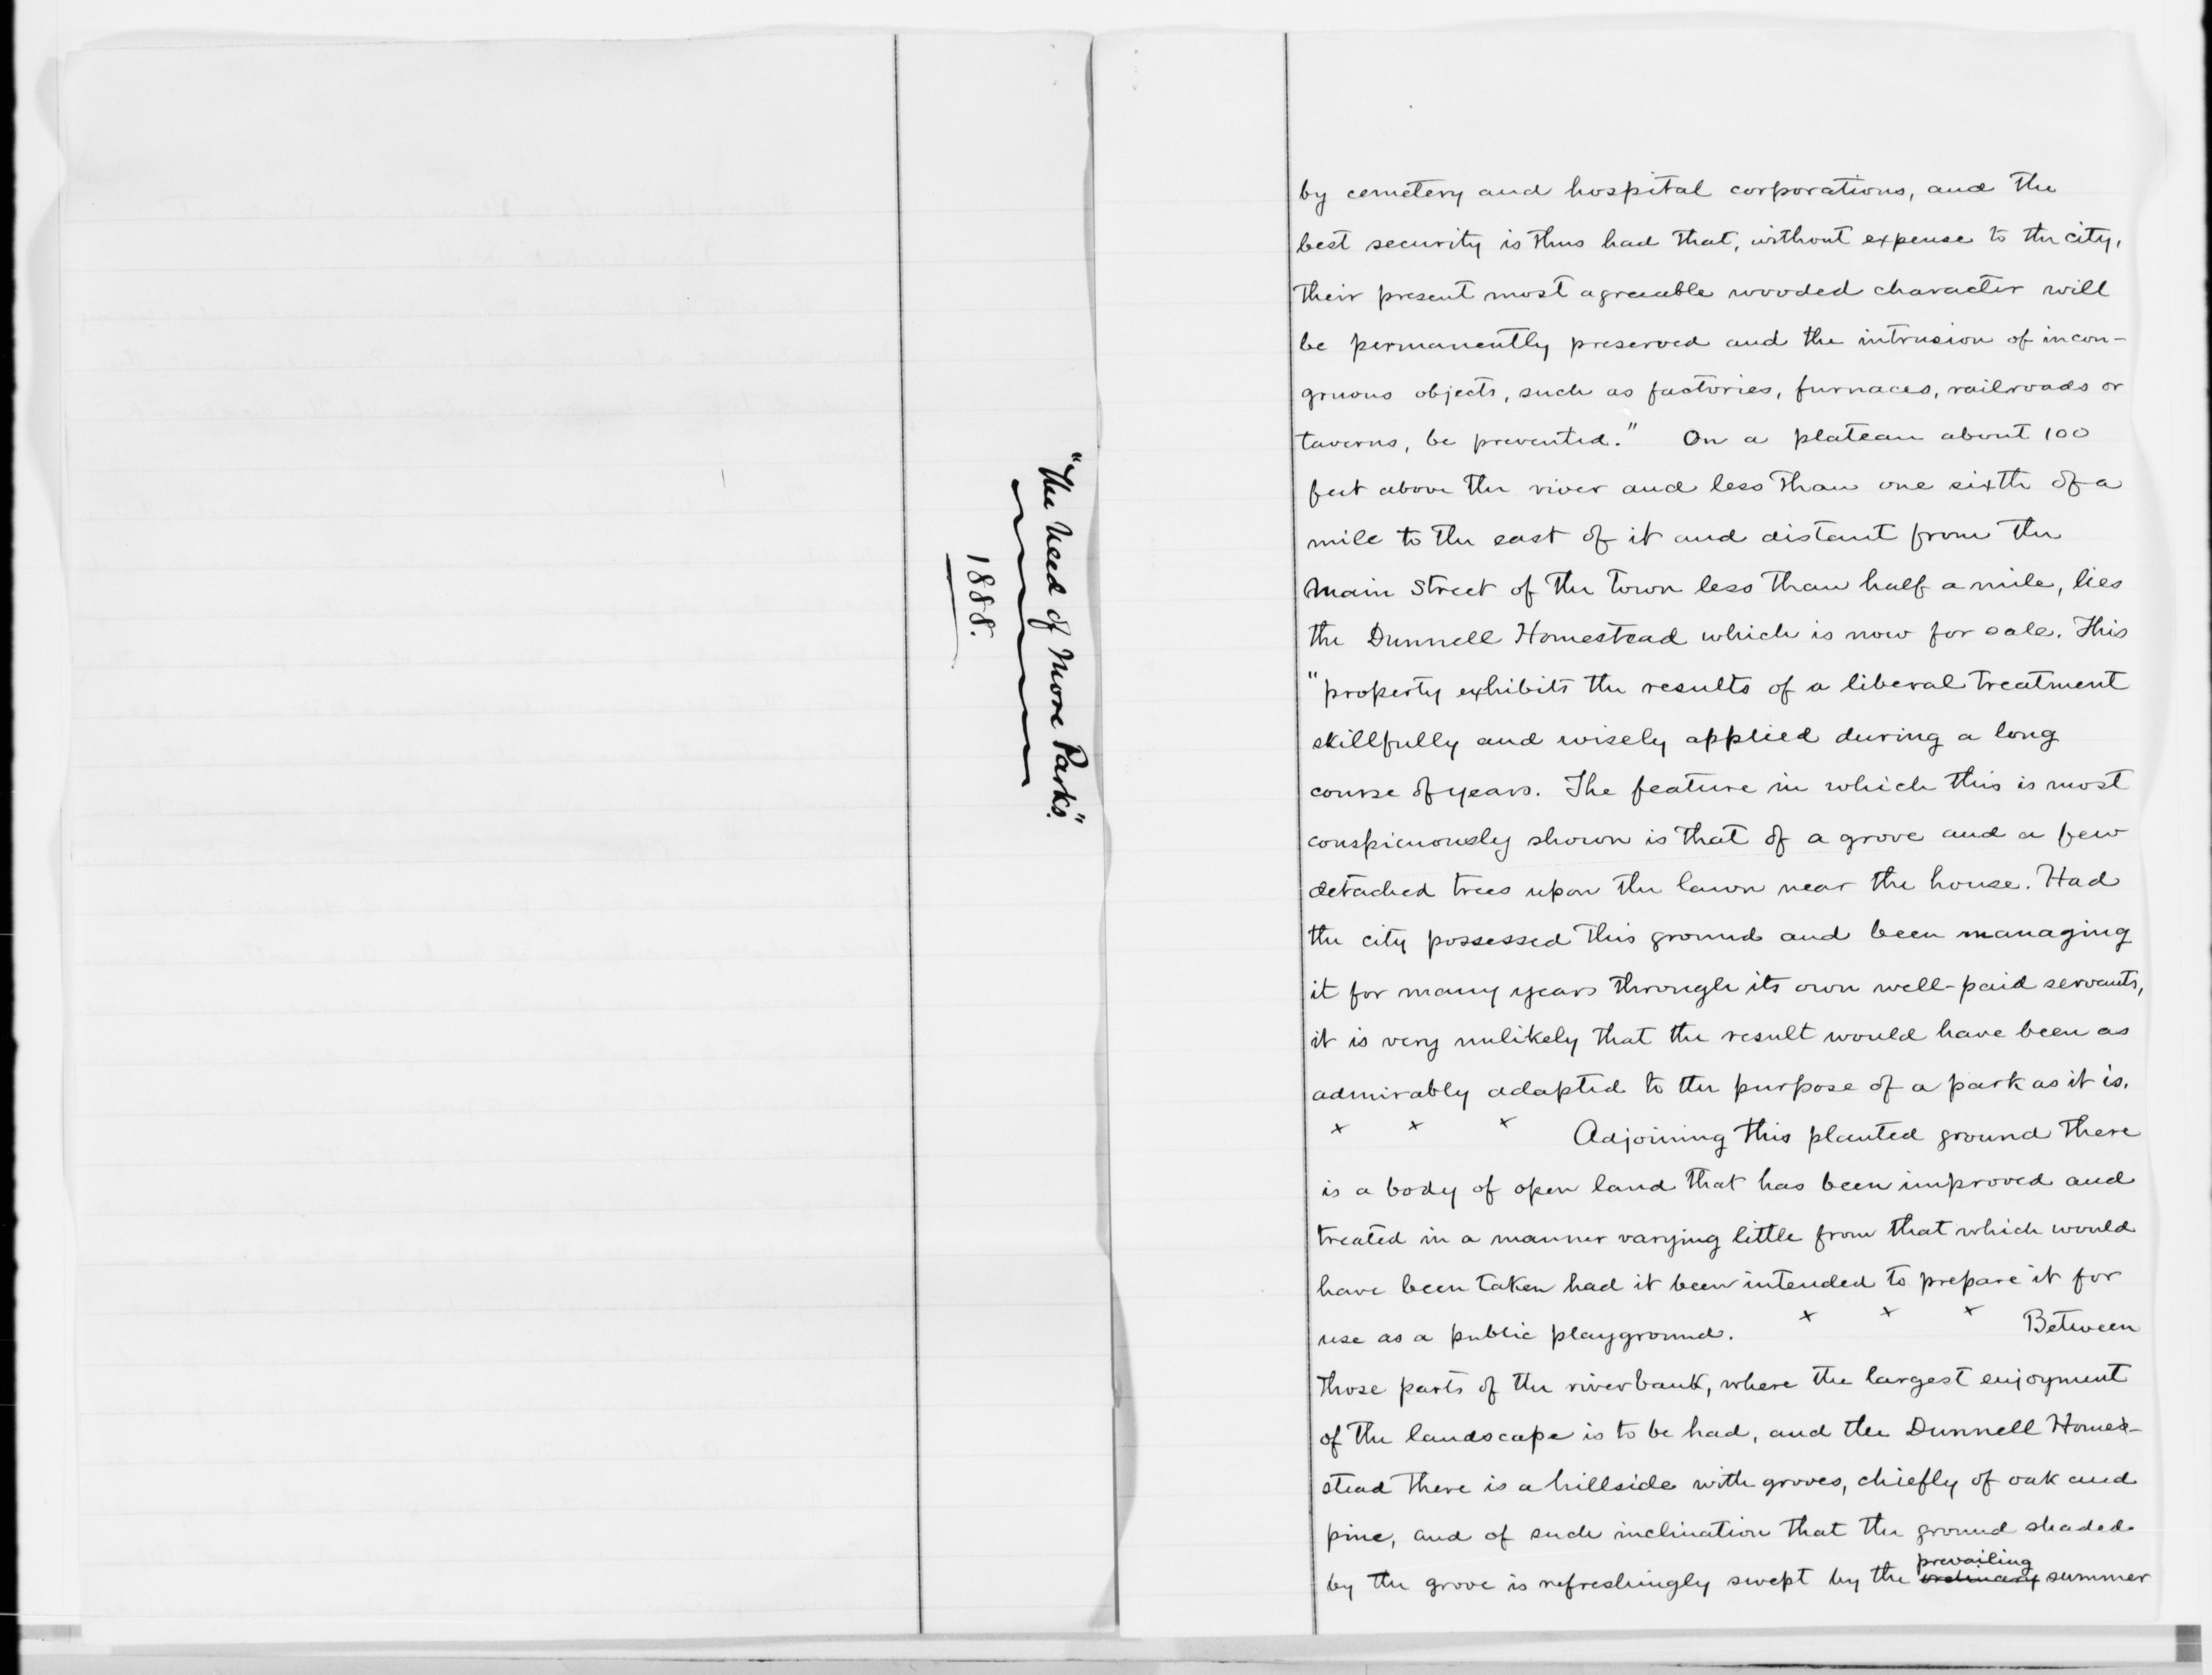 "The Need of More Parks."
1888.
by cemetery and hospital corporations, and the
best security is thus had that, without expense to the city,
their present most agreeable wooded character will
be permanently preserved and the intrusion of incon-
gruous objects, such as factories, furnaces, railroads or
taverns, be prevented." On a plateau about 100
feet above the river and less than one sixth of a
mile to the east of it and distant from the
Main Street of the town less than half a mile, lies
the Dunnell Homestead which is now for sale. This
"property exhibits the results of a liberal treatment
skillfully and wisely applied during a long
course of years. The feature in which this is most
conspicuously shown is that of a grove and a few
detached trees upon the lawn near the house. Had
the city possessed this ground and been managing
it for many years through its own well-paid servants,
it is very unlikely that the result would have been as
admirably adapted to the purpose of a park as it is.
x x x Adjoining this planted ground there
is a body of open land that has been improved and
treated in a manner varying little from that which would
have been taken had it been intended to prepare it for
use as a public playground. x x x Between
those parts of the river bank, where the largest enjoyment
of the landscape is to be had, and the Dunnell Home-
stead there is a hillside with groves, chiefly of oak and
pine, and of such inclination that the ground shaded
prevailing
by the grove is refreshingly swept by the ordinary summer